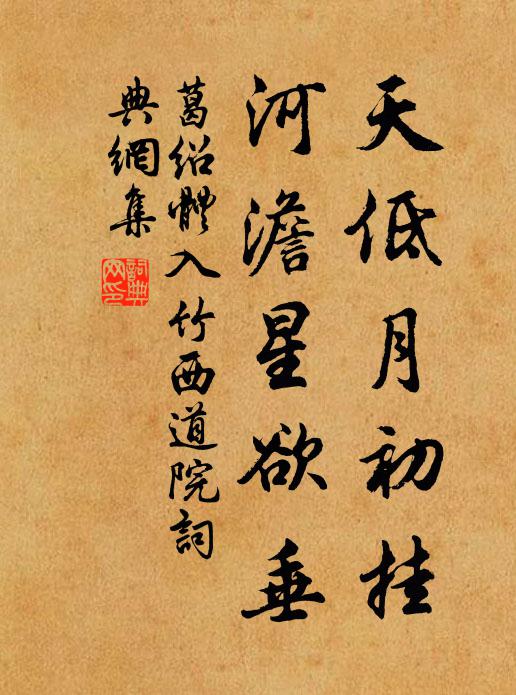 天低月初挂
河澹星欲垂
葛绍體入竹西道院詞
典網集
詞典網印